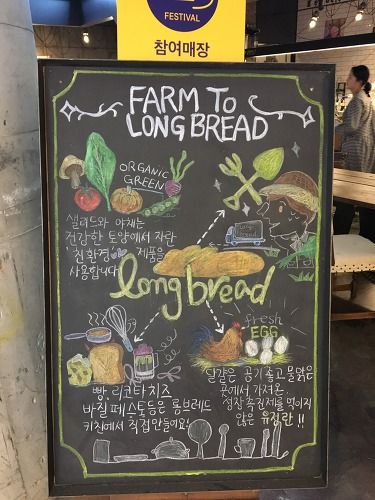 FESTIVAL
참여매장
FARM TO
LONG BREAD
ORGANIC
GREEN
샐러드와 야채는
건강한 토양에서 자란
'친환경' 제품을
사용합니다
long bread
fresh
EGG
빵, 리코타 치즈
바질 페스토등은 롱브레드
키친에서 직접만들어요!
달걀은 공기 좋고 물맑은
곳에서 가져온
성장촉진제를 먹이지
않은 유정란!!